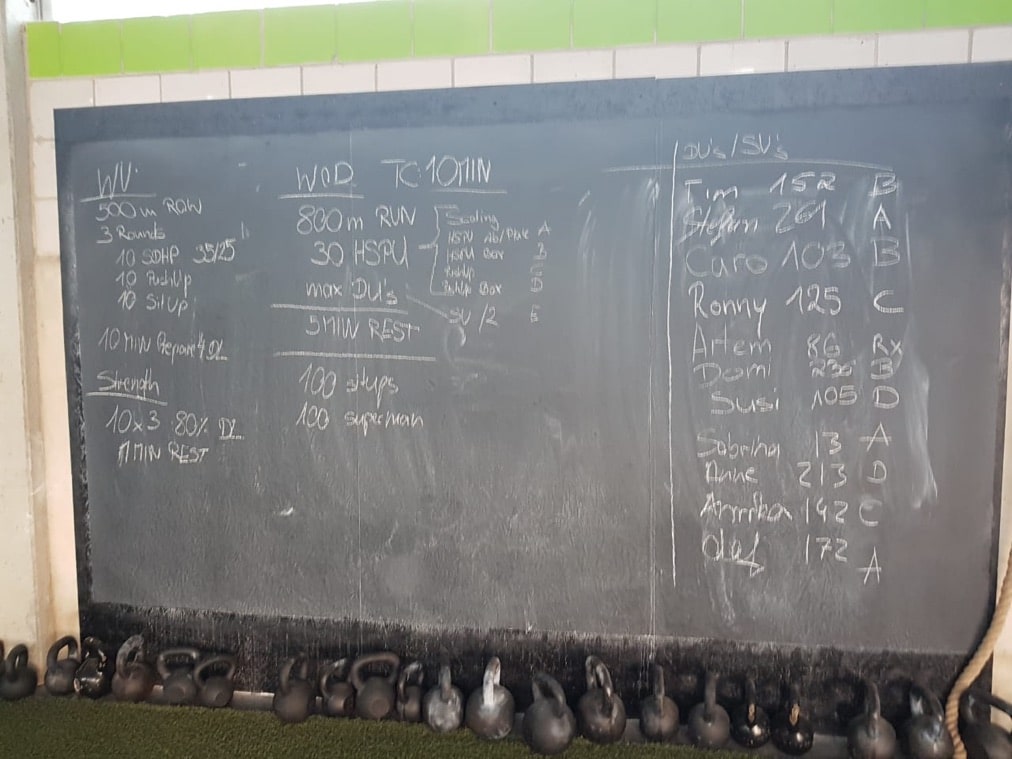 WU:
500 m ROW
3 Rounds
10 SDHP 35/25
10 PushUp
10 SitUp
10 MIN Prepare 4 DL
Strength
10x3 80% DL
1 MIN REST
WOD TC 10 MIN
800 m RUN
30 HSPU
max DU's
5 MIN REST
100 situps
100 superman
Scaling
HSPU Ab/Plate A
HSPU Box B
PushUp C
PushUp Box D
SU/2 E
DU's/SU's
Tim 152 B
Stefan 261 A
Caro 103 B
Ronny 125 C
Artem 86 Rx
Domi B
Susi 105 D
Sabrina 13 A
Anne 213 D
Annika 142 C
Olaf 172 A